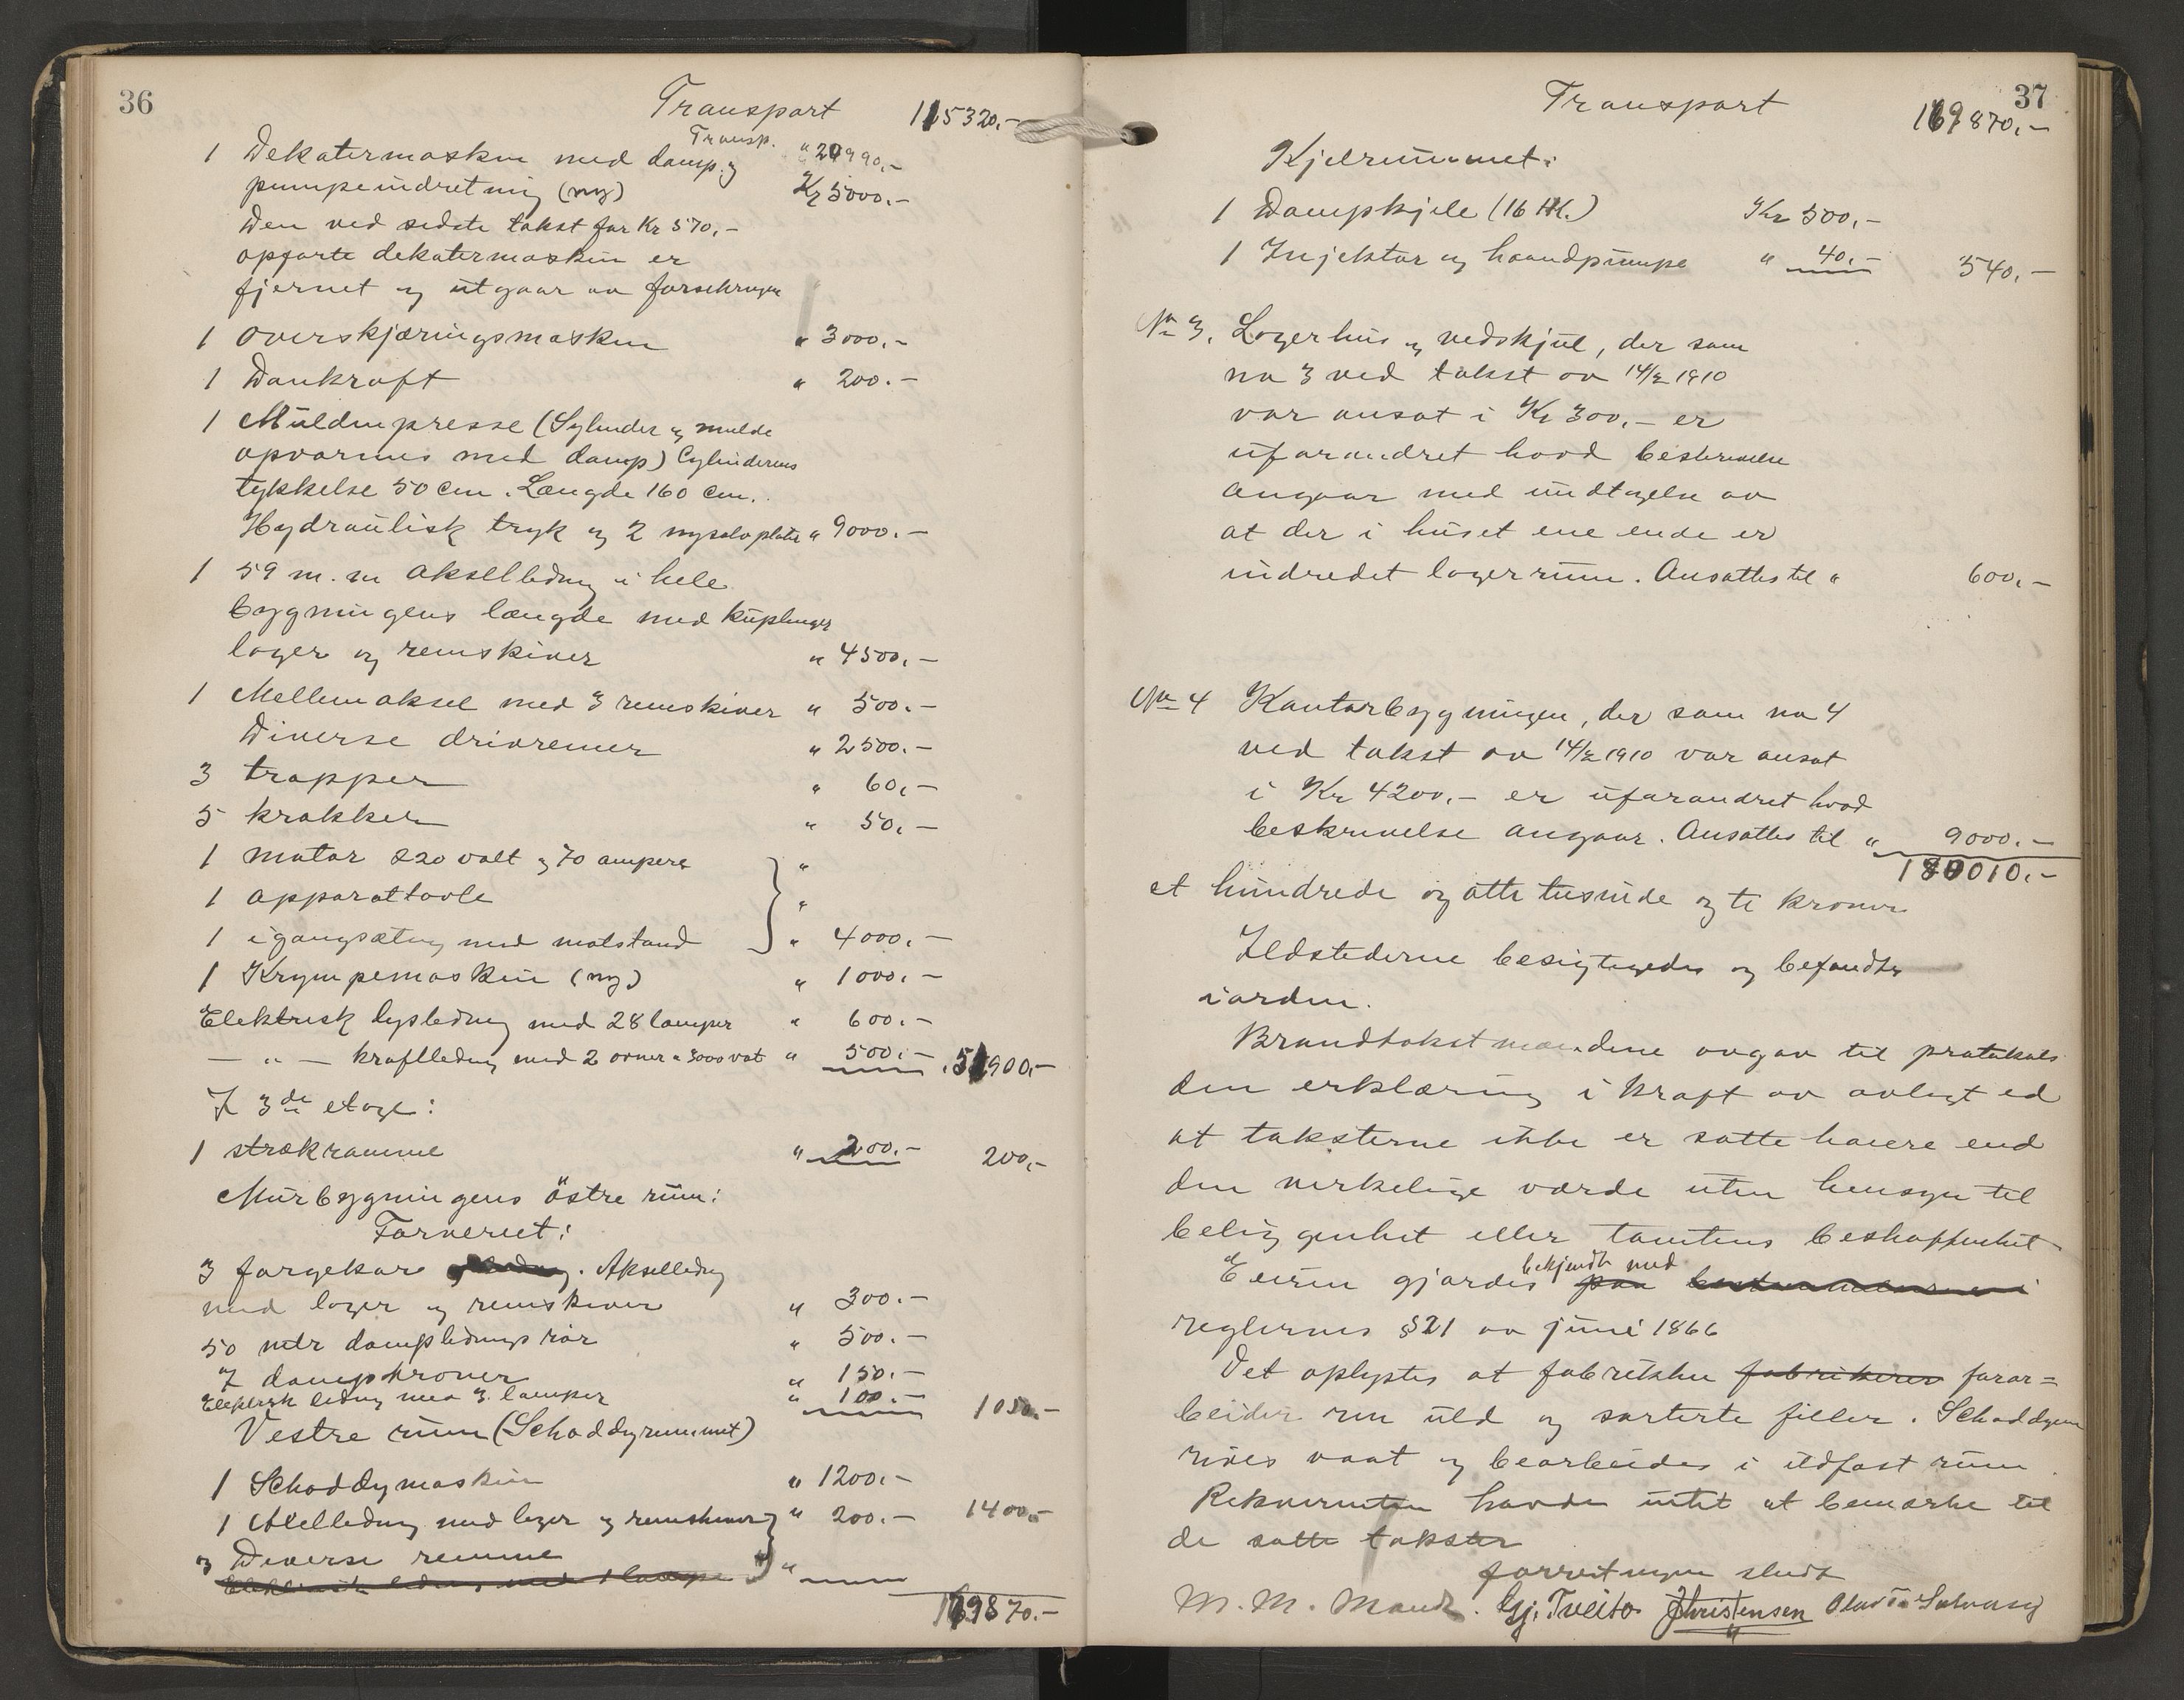 36
Transport 115320.-
Transp. " 20990.-
1 Dekatermaskin med damp og
pumpeindretning (ny) Kr 5000.-
Den ved sidste takst for Kr 570.-
opførte dekatermaskin er
fjernet og utgaar av forsikringen
1 overskjæringsmaskin " 3000.-
1 Dunkraft " 200.-
1 Muldenpresse (Sylinder og mulde
opvarmes med damp) Cylinderens
tykkelse 50 cm. Længde 160 cm.
Hydraulisk tryk og 2 nysølvplater " 9000.-
1 59 m.m akselledning i hele
bygningens længde med kuplinger
lager og remskiver " 4500.-
1 Mellemaksel med 3 remskiver " 500.-
Diverse drivremer " 2500.-
3 trapper " 60.-
5 krakker " 50.-
1 motor 220 volt og 70 ampere "
1 apparattavle "
1 igangsætning med motstand " 4000.-
1 Krympemaskin (ny) " 1000.-
Elektrisk lysledning med 28 lamper " 600.-
— " — kraftledning med 2 ovner a 3000 vat " 500.- 51900.-
I 3de etage:
1 strækramme " 200.- 200.-
Murbygningens östre rum:
Farveriet:
3 fargekar . Akselledning
med lager og remskiver " 300.-
50 mtr dampledningsrör " 500.-
7 dampkroner " 150.-
Elektrisk ledning med 3 lamper " 100.- 1050.-
Vestre rum (Schoddyrummet)
1 Schoddymaskin " 1200.-
1 Akselledning med lager og remskiver " 200.- 1400.-
og Diverse remme
Elektrisk ledning med 1 lampe "
169870.-
37
Transport 169870.-
Kjelrummet:
1 Dampkjele (16 Hk.) Kr 500.-
1 Injektor og haandpumpe " 40.- 540.-
No 3. Lagerhus og vedskjul, der som
no 3 ved takst av 14/2 1910
var ansat i Kr 300.- er
uforandret hvad beskrivelse
angaar med undtagelse av
at der i huset ene ende er
indredet lagerrum. Ansattes til " 600.-
No 4 Kontorbygningen, der som no 4
ved takst av 14/2 1910 var ansat
i Kr 4200.- er uforandret hvad
beskrivelse angaar. Ansattes til " 9000.-
180010.-
et hundrede og otti tusinde og ti kroner
Ildstederne besigtigedes og befandtes
iorden.
Brandtakstmændene avgav til protokols
den erklæring i kraft av avlagt ed
at taksterne ikke er satte høiere end
den virkelige værdi uten hensyn til
beliggenhet eller tomtens beskaffenhet
bekjendt med
Eieren gjordes paa bestemmelserne i
reglernes §21 av juni 1866
Det oplystes at fabrikken fabrikerer forar=
beider ren uld og sorterte filler. Schoddyen
rives vaat og bearbeides i ildfast rum.
Rekvirenten havde intet at bemærke til
de satte takster
forretningen slut
M. M. Mandt. Gj. Tveito JChristensen Olav